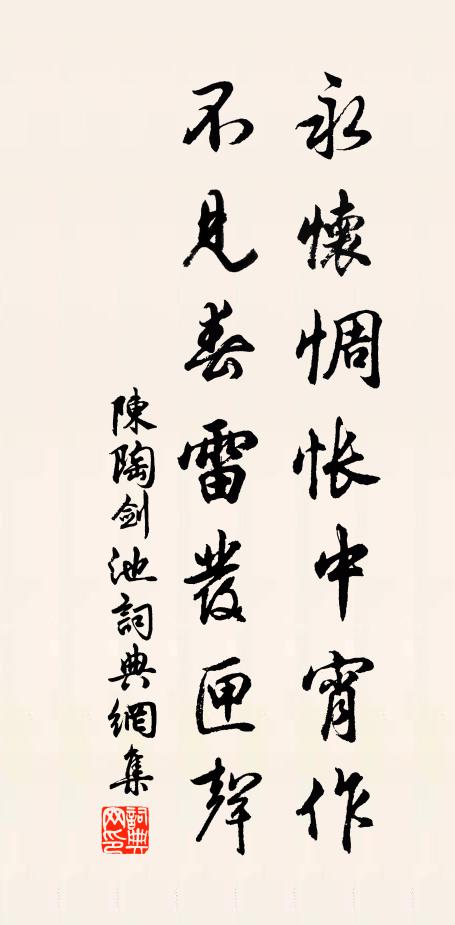 永懷惆悵中宵作
不見春雷發匣聲
陳陶劍池詞典網集
詞典网印